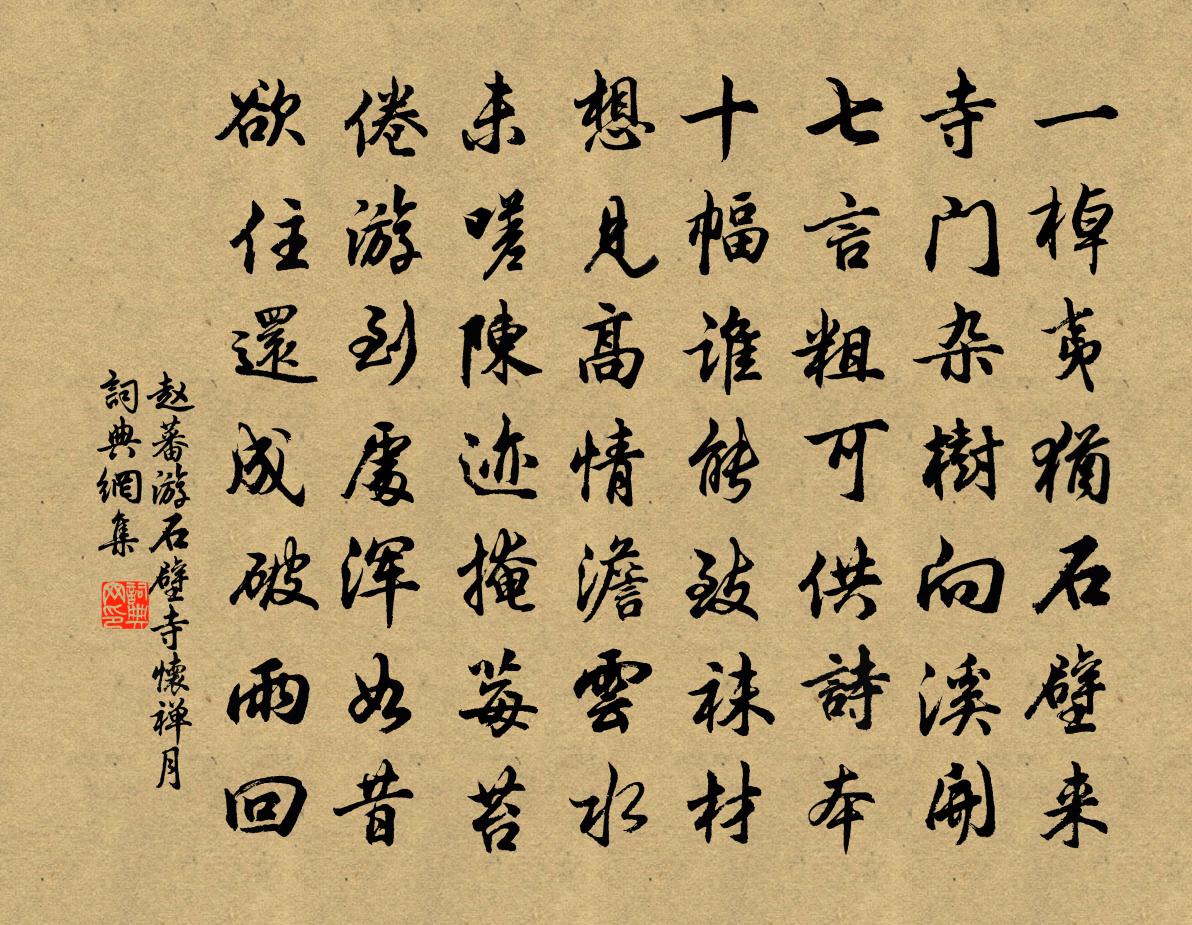 一棹夷猶石壁来
寺门杂樹向溪開
七言粗可供詩本
十幅谁能致袜材
想見高情澹雲水
未嗟陳迹掩莓苔
倦游到處浑如昔
欲住還成破雨回
赵蕃游石壁寺懷禅月
詞典網集
詞典网印